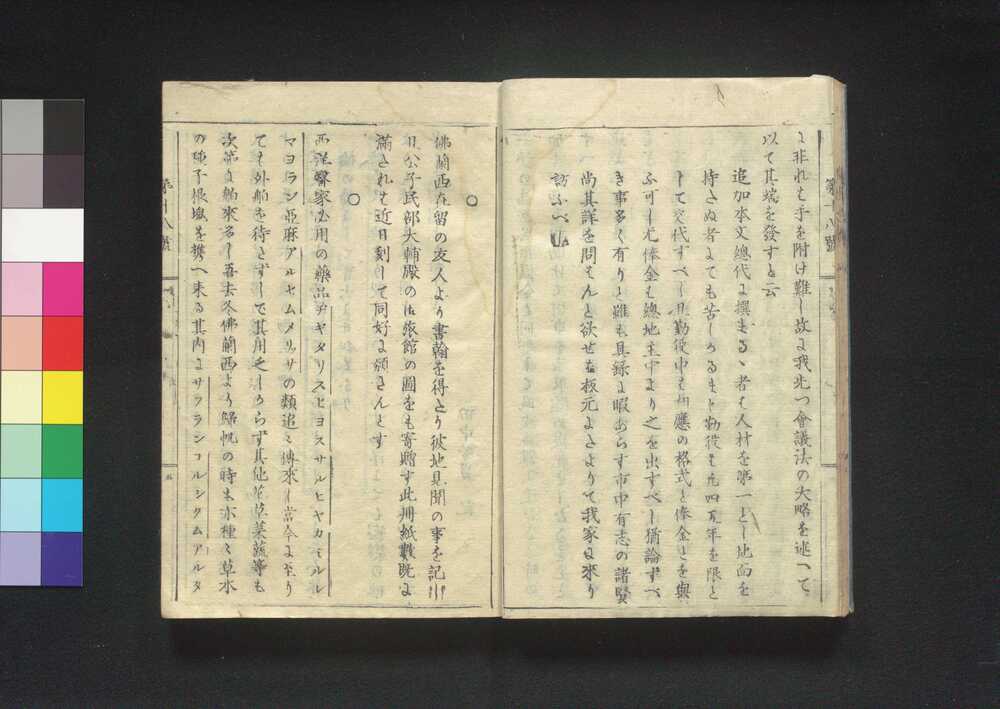 に非れは手を附け難し故に我先つ會議法の大略を述へて
以て其端を發すと云
追加本文總代に撰まるゝ者は人材を第一とし地面を
持さぬ者にても苦しからるましく勤役は凡四五年を限と
して交代すべし且勤役中は相應の格式と俸金とを與
ふ可し尤俸金は總地主中より之を出すべし猶論ずべ
き事多く有りと雖も具録に暇あらす市中有志の諸賢
尚其詳を問はんと欲せは板元よさよりて我家に來り
訪ふべし
第十八號
○
佛蘭西在留の友人より書翰を得たり彼地見聞の事を記し
且公子民部大輔殿の御旅館の圖をも寄贈す此册紙數既に
滿されは近日刻して同好に頒さんとす
○
西洋醫家必用の藥品ヂキタリスヒヨスサルヒヤカミルル
マヨラン亞麻アルセムメリッサの類追々傳來し當今に至り
ても外舶を待たずして其用乏しからず其他花草菜蔬等も
次第に舶來多し吾去冬佛蘭西より歸帆の時も亦種々草木
の種子根塊を携へ来る其内にサフランコルシクムアルタ
第十八號